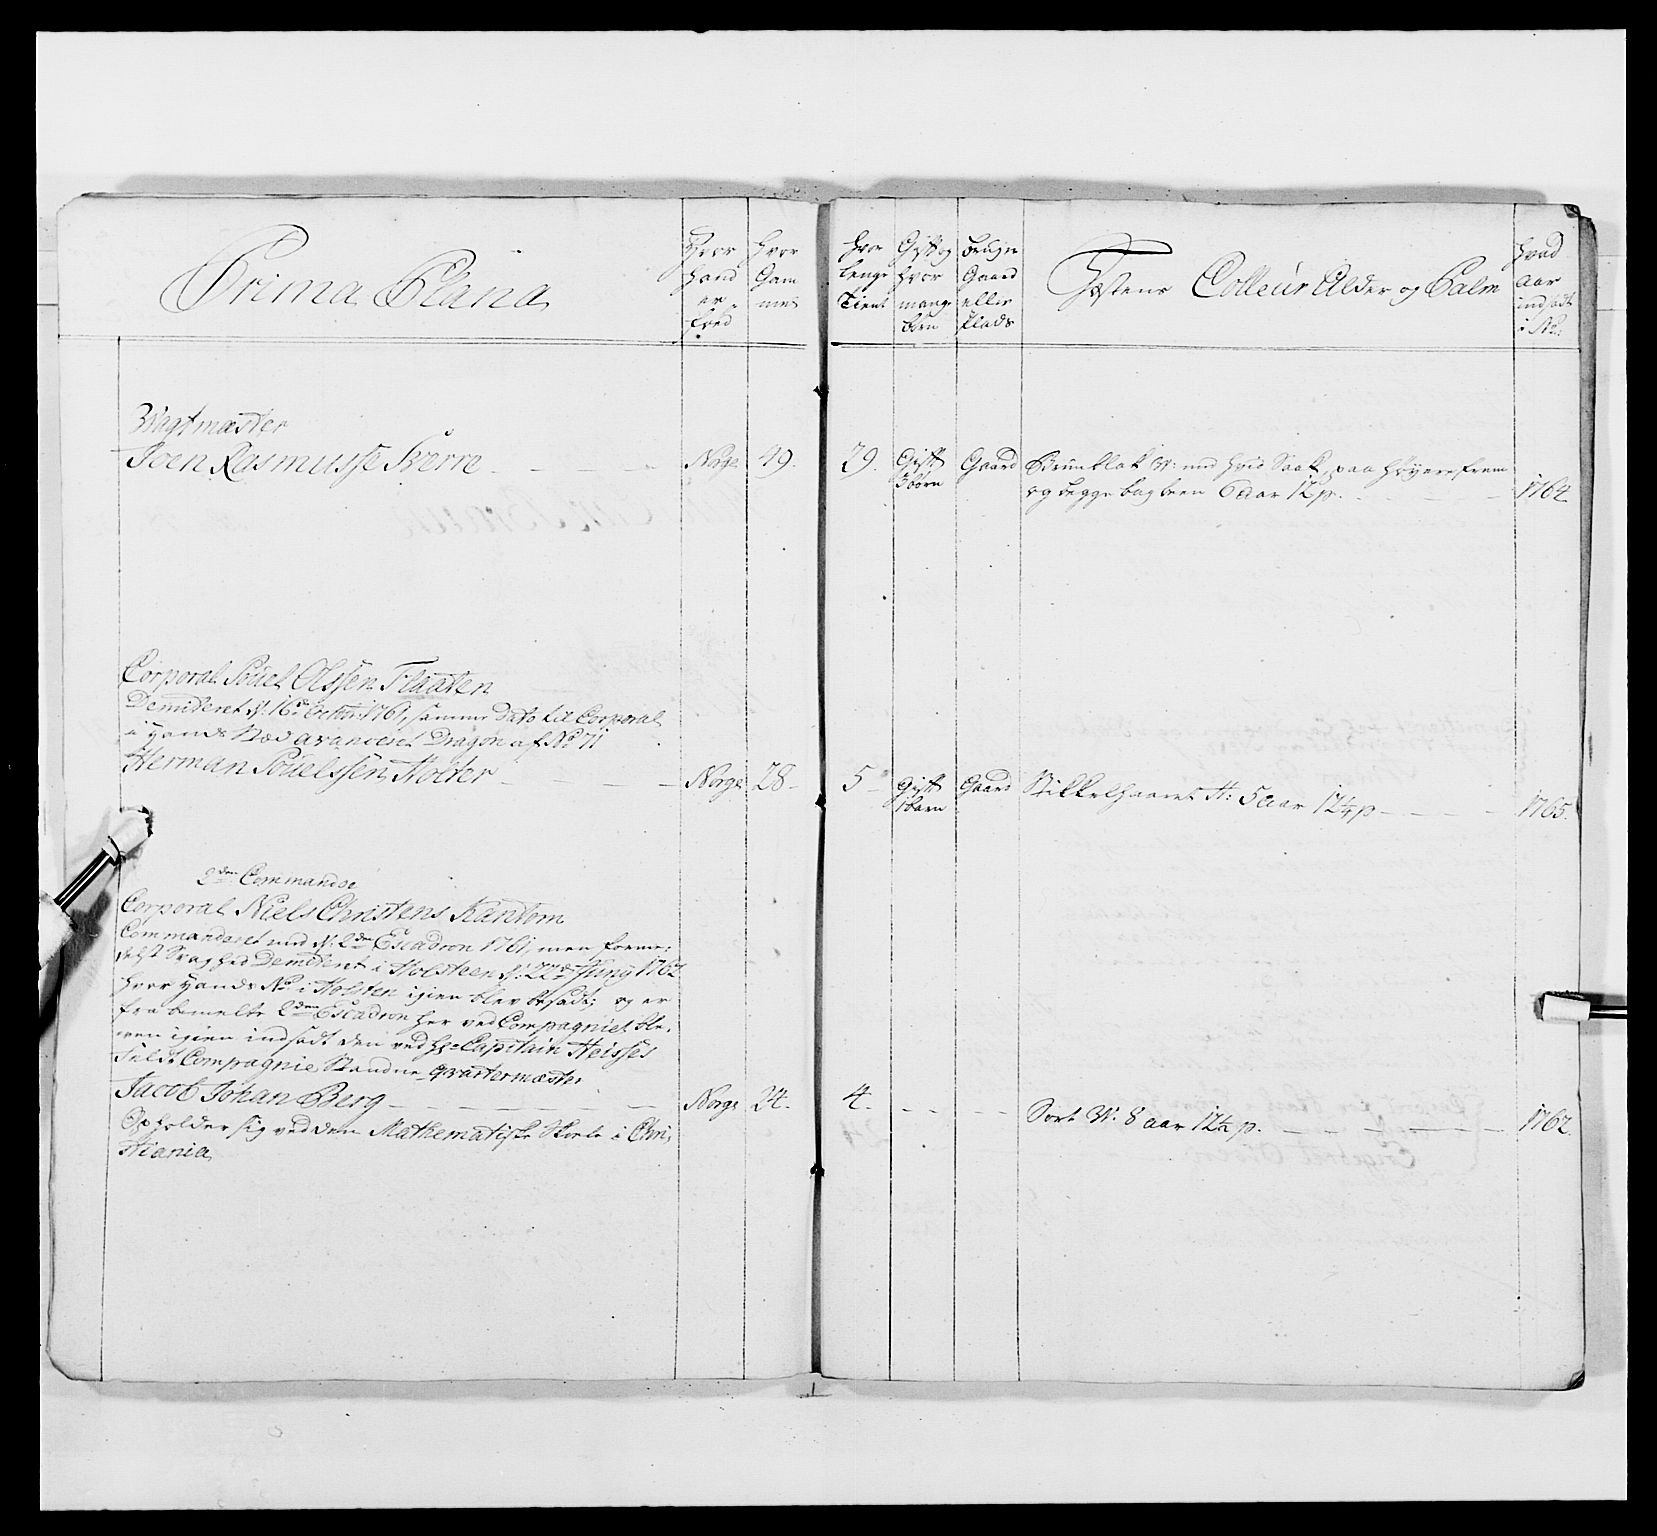 Prima Plana
Hvor
hand
er
fød
Hvor
Gam
mel
Hvor
lenge
Tient
Gift og
hvor
mange
børn
bruger
Gaard
eller
Plads
Hæstens Colleur Alder og Palm
Hvad
Aar
indsadt
i No:
Wagtmæster
Joen Rasmusse Kierre
Norge
49.
29.
Gift
3 børn
Gaard
Bruunblak W: med hvid Saak, paa høyere frem
og begge bagbeen 6 aar 12 p.
1764
Corporal Poüel Olssen Flaaten
Demitteret d: 16de Octbr: 1761, samme Dato til Corporal
i Hands Stæd avanceret Dragon af No 71
Herman Poüelssen Holter
Norge
28
5
Gift
1 barn
Gaard
Stikkelhaaret H: 5 aar 12¼ p
1765.
2den Commando
Corporal Niels Christens Kantom
Commanderet med d: 2den Escadron 1761, men forme-
delst Svaghed Demitteret i Holsteen d: 22de Juny 1762
hvor Hands No i Holsten igien blev besadt; og er
fra bemelte 2den Escadron her ved Compagniet ble-
ven igien indsadt den ved Hr Capitain Heisses
Feldt Compagnie Standne Qvartermæster
Jacob Johan Berg
Norge
24.
4.
Sort W. 8 aar 12½ p.
1762.
Opholder sig ved den Mathematiske Skole i Chri-
stiania